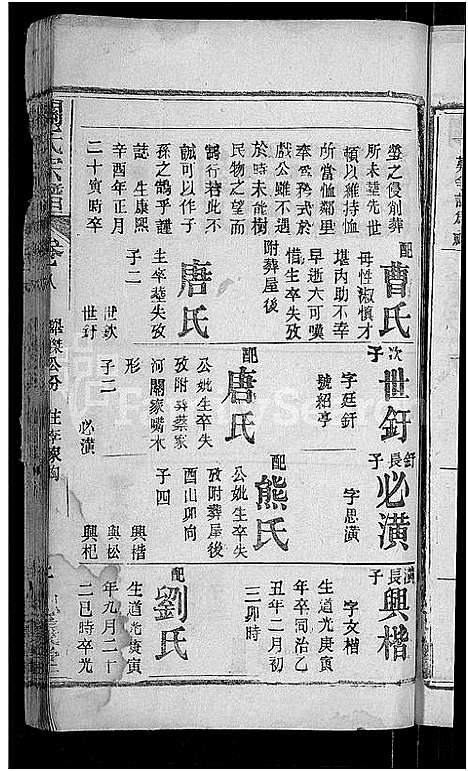 塋之侵削葬
所未塟先世
頓以維持恤
所當恤鄰里
奉爲矜式於
戲公雖不遇
於時未能樹
民物之望而
篤行若此不
誠可以作子
孫之鵠乎謹
誌 生康熙
辛酉年正月
二十寅時卒
配
曹氏
毋性淑慎才
堪内助不幸
早逝亦可嘆
惜生卒失攷
附葬屋後
唐氏
生卒塟失攷
子二
世欽
世釪
次子
世釪
字廷釪
號紹亭
配
唐氏
公妣生卒失
攷附葬蔡家
河關家嘴木
形
子二
必潢
釪長子
必潢
字思潢
配
熊氏
公妣生卒失
攷附葬屋後
酉山卯向
子四
興楷
興松
興杞
潢長子
興楷
字文楷
生道光庚寅
年卒同治乙
丑年二月初
三卯時
配
劉氏
生道光庚寅
年九月二十
二巳時卒光